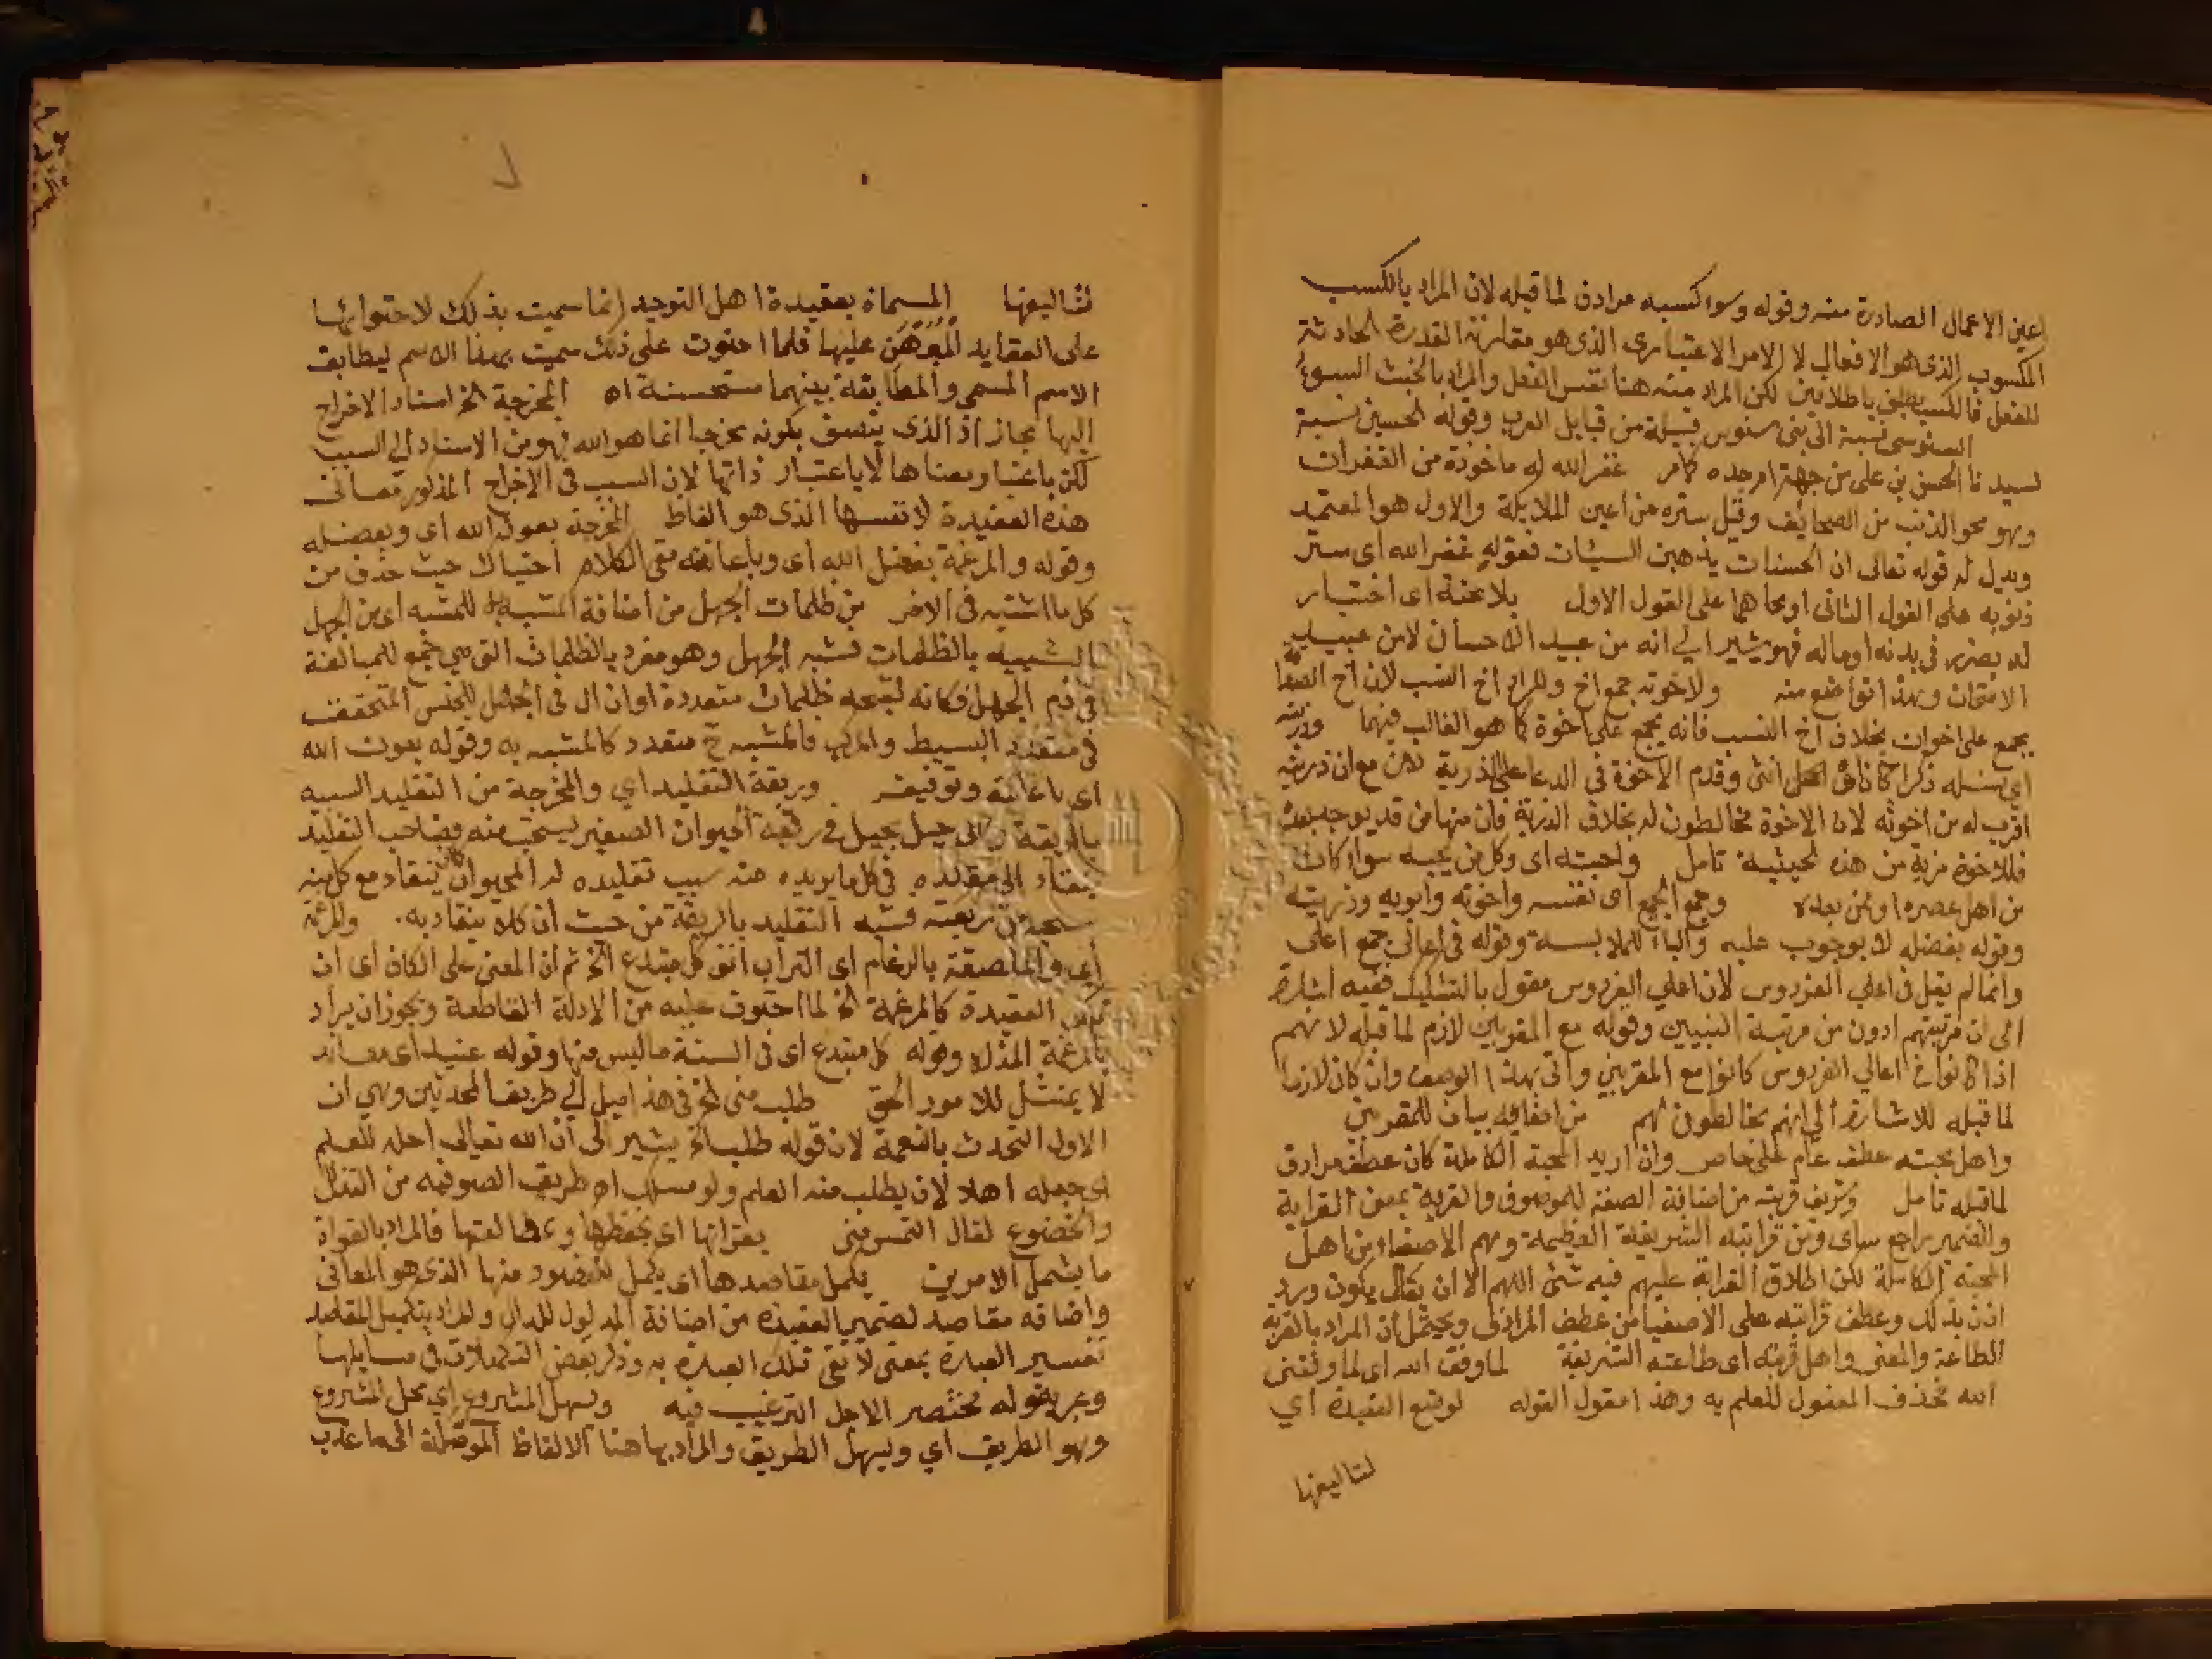 اعين الاعمال الصادرة منه وقوله وسوا كسبه مرادف لما قبله لان المراد بالكسب
المكسوب الذى هو الافعال لا الامر الاعتبارى الذى هو مقارنة القدرة الحادثة
للفعل فالكسب يطلق باطلاقين لكن المراد منه هنا نفس الفعل والمراد بالخبث السوء
السنوسى نسبة الى بنى سنوس قبيلة من قبايل العرب وقوله الحسين نسبة
لسيدنا الحسن بن على من جهة ام جده كامر غفر الله له ماخوذة من الغفران
وهو محو الذنب من الصحايف وقيل ستره من اعين الملايكة والاول هو المعتمد
ويدل له قوله تعالى ان الحسنات يذهبن السيئات فقوله غفر الله اى ستر
ذنوبه على القول الثانى او محاها على القول الاول بلا محنة اى اختبار
له بضرر فى بدنه او ماله فهو يشير الى انه من عبيد الاحسان لا من عبيد
الامتحان وهذا تواضع منه ولاخوته جمع اخ والمراد اخ النسب لان اخ الصداقة
يجمع على اخوان بخلاف اخ النسب فانه يجمع على اخوة كما هو الغالب فيهما وذريته
اى نسله ذكرا كان او انثى وقدم الاخوة فى الدعا على الذرية مع ان ذريته
اقرب له من اخوته لان الاخوة مخالطون له بخلاف الذرية فان منها من قد يوجد بعد
فللاخوة مزية من هذه الحيثية تامل واحبته اى وكل من يحبه سوا كان
من اهل عصره او ممن بعده وجمع الجمع اى نفسه واخوته وابويه وذريته
وقوله بفضله لا بوجوب عليه والباء للملابسة وقوله فى اعالى جمع اعلى
وانما لم يقل فى اعلى الفردوس لان اعلى الفردوس مقول بالتشكيك ففيه اشارة
الى ان مرتبتهم ادون من مرتبة النبيين وقوله مع المقربين لازم لما قبله لانهم
اذا كانوا فى اعالى الفردوس كانوا مع المقربين واتى بهذا الوصف وان كان لازما
لما قبله للاشارة الى انهم مخالطون لهم من اصفيائه بيان للمقربين
واهل محبته عطف عام على خاص وان اريد المحبة الكاملة كان عطف مرادف
لما قبله تامل وشريف قربته من اضافة الصفة للموصوف والقربة بمعنى القرابة
والضمير راجع اى ومن قرابته الشريفة العظيمة وهم الاصفياء من اهل
المحبة الكاملة لكن اطلاق القرابة عليهم فيه شئ اللهم الا ان يقال يكون ورد
اذن بذلك وعطف قرابته على الاصفيا من عطف المرادف ويحتمل ان المراد بالقربة
الطاعة والمعنى واهل قربته اى طاعته الشريفة لما وفق الله اى لما وفقنى
الله فحذف المفعول للعلم به وهذا مقول القوله لوضع العقيدة اي
لتاليفها
لتاليفها المسماة بعقيدة اهل التوحيد انما سميت بذلك لاحتوائها
على العقايد المبرهن عليها فلما احتوت على ذلك سميت بهذا الاسم ليطابق
الاسم المسمى والمطابقة بينهما مستحسنة اه المخرجة الخ اسناد الاخراج
اليها مجاز اذ الذى يتصف بكونه مخرجا انما هو الله فهو من الاسناد الى السبب
لكن باعتبار معناها لا باعتبار ذاتها لان السبب فى الاخراج المذكور معانى
هذه العقيدة لا نفسها الذى هو الفاظ المخرجة بعون الله اى وبفضله
وقوله والمرغمة بفضل الله اى وباعانته ففى الكلام احتباك حيث حذف من
كل ما اثبته فى الاخر من ظلمات الجهل من اضافة المشبه به للمشبه اى من الجهل
الشبيه بالظلمات فشبه الجهل وهو مفرد بالظلمات التى هى جمع للمبالغة
فى ذم الجهل فكانه لقبحه ظلمات متعددة او ان ال فى الجهل للجنس المتحقق
فى متعدد البسيط والمركب فالمشبه ح متعدد كالمشبه به وقوله بعون الله
اى باعانته وتوفيقه وربقة التقليد اى والمخرجة من التقليد الشبيه
بالربقة وهى حبل يجعل فى رقبة الحيوان الصغير ليسحب منه فصاحب التقليد
ينقاد الى مقلده فى كل ما يريده منه سبب تقليده له الحيوان ينقاد مع كل من
سحبه من ربقته فشبه التقليد بالربقة من حيث ان كلا ينقاد به. والمرغمة
اى والملصقة بالرغام اى التراب انف كل مبتدع الخ ثم ان المعنى على الكاف اى ان
تلك العقيدة كالمرغمة الخ لما احتوت عليه من الادلة القاطعة ويجوز ان يراد
بالمرغمة المذلة وقوله كل مبتدع اى فى السنة ما ليس منها وقوله عنيد اى معاند
لا يمتثل للامور الحق طلب منى الخ فى هذا ميل الى طريقة المحدثين وهى ان
الاولى التحدث بالنعمة لان قوله طلب الخ يشير الى ان الله تعالى اهله للعلم
اى جعله اهلا لان يطلب منه العلم ولو مسلك اه طريق الصوفيه من التذلل
والخضوع لقال التمس منى بقراتها اى بحفظها ومطالعتها فالمراد بالقراة
ما يشمل الامرين يكمل مقاصدها اى يكمل المقصود منها الذى هو المعانى
واضافه مقاصد لضمير العقيدة من اضافة المدلول للدال والمراد بتكميل المقاصد
تفسير العبارة بمعنى لا تفى تلك العبارة به وذكر بعض التكملات فى مسايلها
وعبر بقوله مختصر لاجل الترغيب فيه ويسهل المشروع اى محل المشروع
وهو الطريق اى وليسهل الطريق والمراد بها هنا الالفاظ الموصلة الى ما عذب